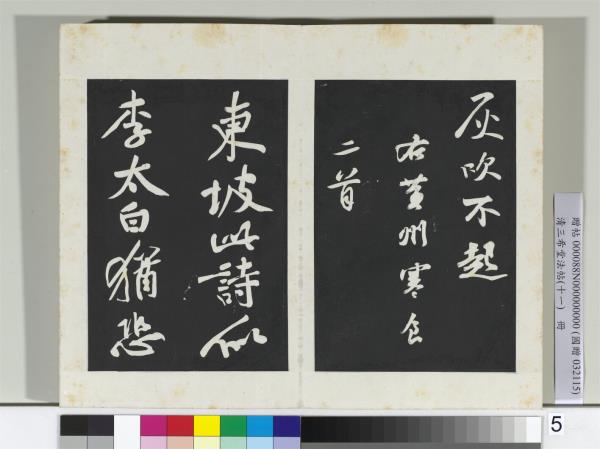 灰吹不起
右黃州寒食
二首
東坡此詩似
李太白猶恐
贈帖 000088N000000000 (國贈 032115)
清三希堂法帖(十一) 冊
5